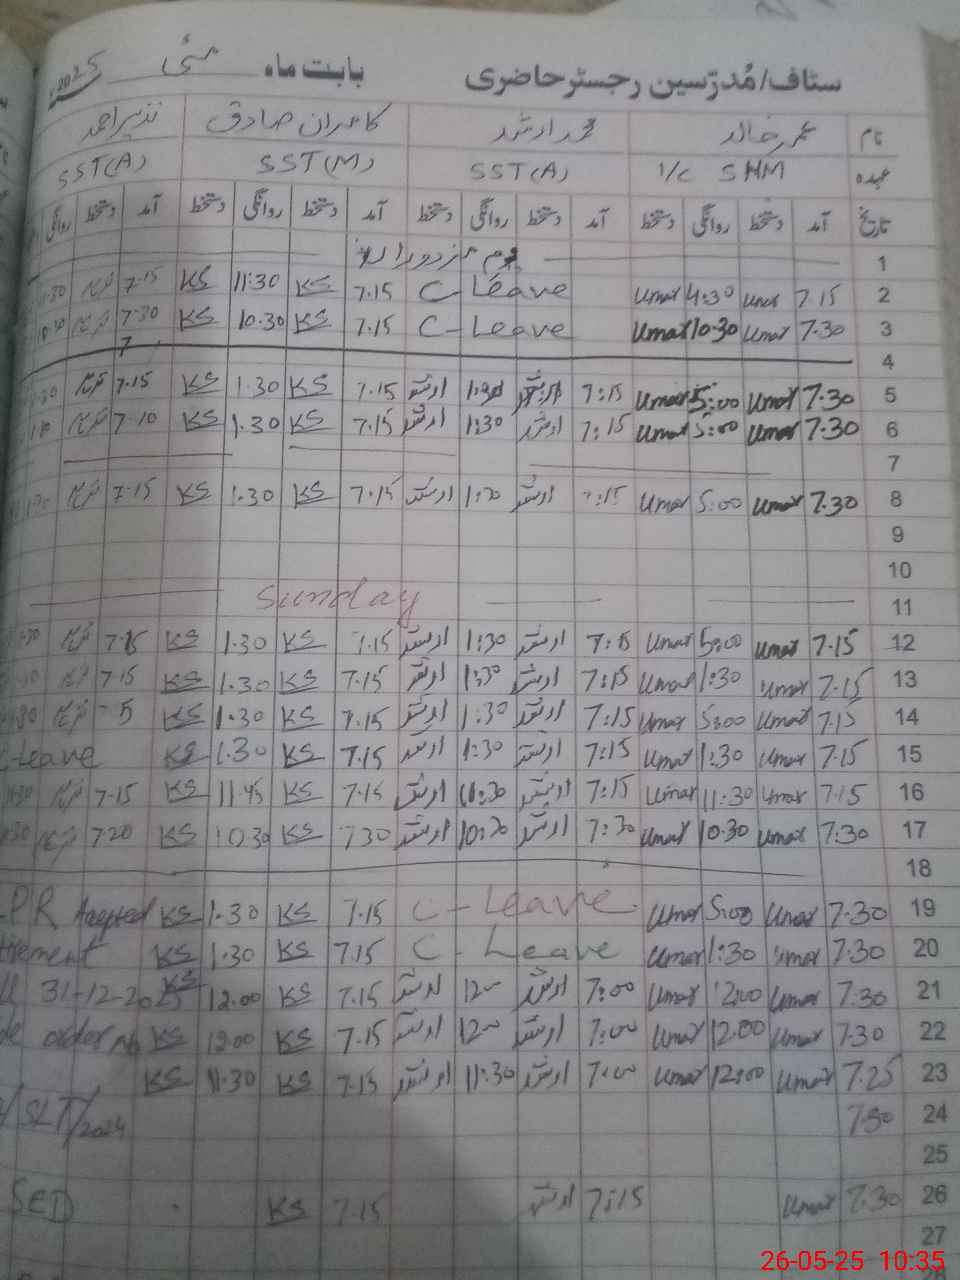 سٹاف/مُدرّسین رجسٹر حاضری بابت ماہ مئی 2025
نام عمر خالد محمد ارشد کامران صادق نذیر احمد
عہدہ I/C SHM SST(A) SST(M) SST(A)
تاریخ آمد دستخط روانگی دستخط آمد دستخط روانگی دستخط آمد دستخط روانگی دستخط آمد دستخط روانگی
1 یوم مزدوراں
2 7.15 Umar 4:30 Umar C-Leave 7.15 KS 11:30 KS 7.15
3 7.30 Umar 10.30 Umar C-Leave 7.15 KS 10.30 KS 7.30
4
5 7.30 Umar 5:00 Umar 7:15 ارشد 1:30 ارشد 7.15 KS 1.30 KS 7.15
6 7.30 Umar 5:00 Umar 7:15 ارشد 1:30 ارشد 7.15 KS 1.30 KS 7.10
7
8 7.30 Umar 5:00 Umar 7:15 ارشد 1:30 ارشد 7.15 KS 1.30 KS 7.15
9
10
11 Sunday
12 7.15 Umar 5:00 Umar 7:15 ارشد 1:30 ارشد 7.15 KS 1.30 KS 7.15
13 7.15 Umar 1:30 Umar 7:15 ارشد 1:30 ارشد 7.15 KS 1.30 KS 7.15
14 7.15 Umar 5:00 Umar 7:15 ارشد 1:30 ارشد 7.15 KS 1.30 KS
15 7.15 Umar 1:30 Umar 7:15 ارشد 1:30 ارشد 7.15 KS 1.30 KS C-Leave
16 7.15 Umar 11:30 Umar 7:15 ارشد 11:30 ارشد 7.15 KS 11.45 KS 7.15
17 7:30 Umar 10.30 Umar 7:30 ارشد 10:30 ارشد 7.30 KS 10.30 KS 7.20
18
19 7.30 Umar 5:00 Umar C-Leave 7.15 KS 1.30 KS PR Accepted
20 7.30 Umar 1:30 Umar C-Leave 7.15 KS 1.30 KS
21 7.30 Umar 12:00 Umar 7:00 ارشد 12 ارشد 7.15 KS 12.00 KS 31-12-2025
22 7.30 Umar 12:00 Umar 7:00 ارشد 12 ارشد 7.15 KS 12.00 KS order No
23 7.25 Umar 12:00 Umar 7:00 ارشد 11:30 ارشد 7.15 KS 11.30 KS
24 7.30 /SLT/2024
25
26 7.30 Umar 7:15 ارشد 7.15 KS SED
27
28
26-05-25 10:35